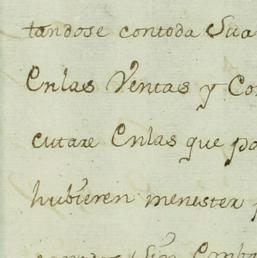 tandose contoda Sua
Enlas Ventas y Co
cutare Enlas que po
hubieren menester p